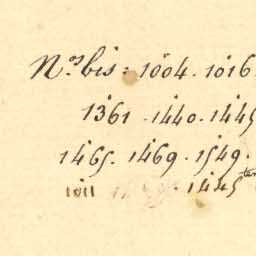 Nos. bis: 1004. 1016
1361. 1440. 1445
1465. 1469. 1549.
1011 1445 ter